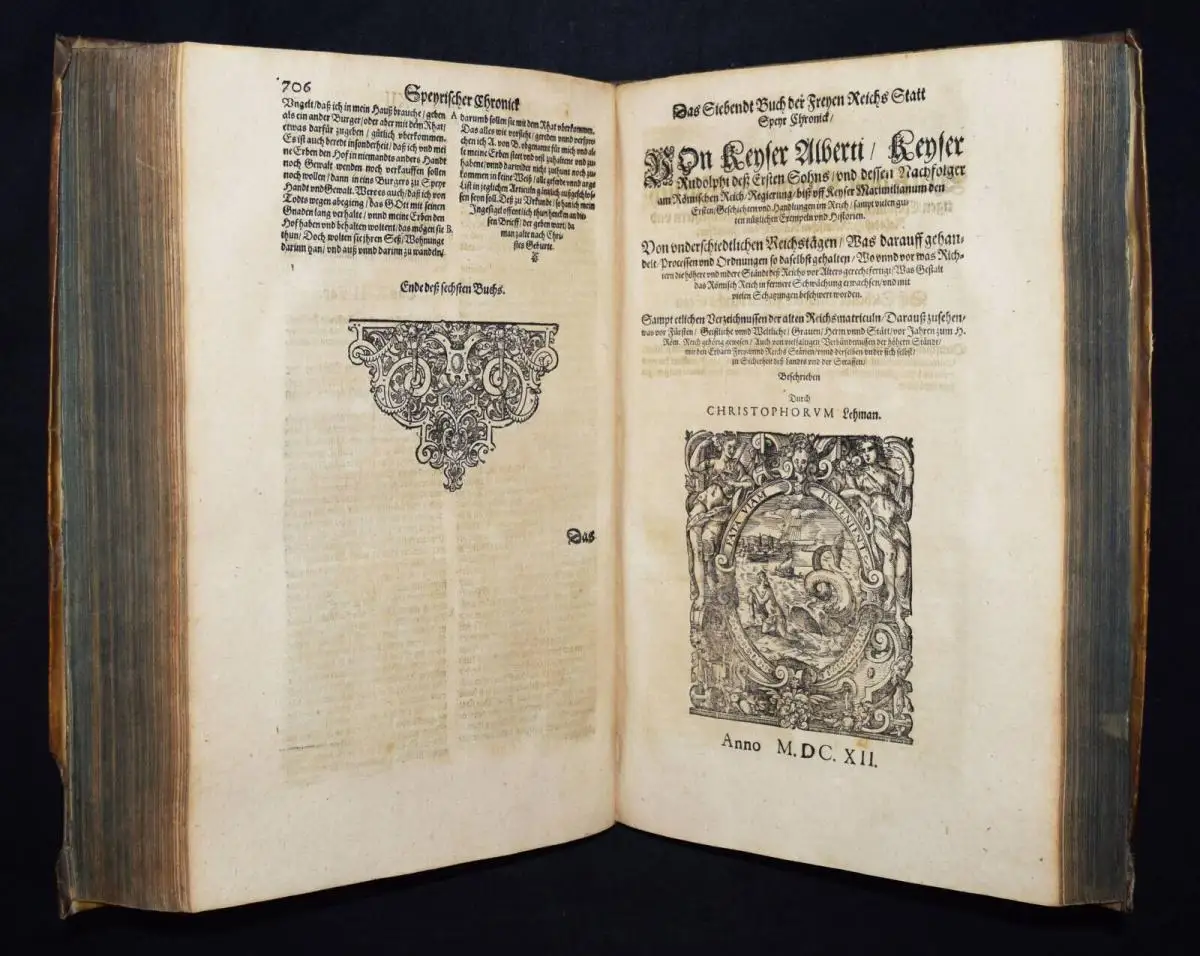 706
Speyrischer Chronick
Vngelt/daß ich in mein Hauß brauche/geben
als ein ander Burger/oder aber mit dem Rhat/
etwas darfür zugeben/gütlich vberkommen.
Es ist auch beredt insonderheit/daß ich vnd mei
ne Erben den Hof in niemandts anders Handt
noch Gewalt wenden noch verkauffen sollen
noch wollen/dann in eins Burgers zu Speyr
Handt vnd Gewalt. Were es auch/daß ich von
Todts wegen abegieng/das GOtt mit seinen
Gnaden lang verhalte/vnnd meine Erben den
Hof haben vnd behalten woltent/das mögen sie
thun/Doch wolten sie ihren Seß/Wohnunge
darinn han/vnd auß vnnd darinn zu wandeln/
A
B
darumb sollen sie mit dem Rhat vberkommen.
Das alles wie vorsteht/gereden vnnd verspro-
chen ich A. von B. obgenannt für mich vnd al-
le meine Erben stett vnd vest zuhaltene vnd zu-
habene/vnnd darwider nicht zuthunt noch zu-
kommen in keine Weiß/alle geferde vnnd arge
List in jeglichen Articuln gäntzlich außgeschlos-
sen seyn soll. Deß zu Vrkunde/so han ich mein
Ingesigel offentlich thun hencken an die-
sen Brieff/der geben wart/da
man zalte nach Chri-
stes Geburte.
Ende deß sechsten Buchs.
Das
Das Siebendt Buch der Freyen Reichs Statt
Speyr Chronick/
VOn Keyser Alberti/Keyser
Rudolphi deß Ersten Sohns/vnd dessen Nachfolger
am Römischen Reich/Regierung/biß vff Keyser Maximilianum den
Ersten/Geschichten vnd Handlungen im Reich/sampt vielen gu-
ten nützlichen Exempeln vnd Historien.
Von vnderschiedtlichen Reichstägen/Was darauff gehan-
delt/Processen vnd Ordnungen so daselbst gehalten/Wo vnnd vor was Rich-
tern die höhere vnd nidere Ständt deß Reichs vor Alters gerechtfertigt/Was Gestalt
das Römisch Reich in fernere Schwächung erwachsen/vnd mit
vielen Schatzungen beschwert worden.
Sampt etlichen Verzeichnussen der alten Reichsmatriculn/Darauß zusehen/
was vor Fürsten/Geistliche vnnd Weltliche/Grauen/Herrn vnnd Stätt/vor Jahren zum H.
Röm. Reich gehörig gewesen/Auch von vielfaltigen Verbündnussen der höhern Ständt/
mit den Erbarn Frey vnnd Reichs Stätten/vnnd derselben vnder sich selbst/
zu Sicherheit deß Landes vnd der Strassen/
Beschrieben
Durch
CHRISTOPHORVM Lehman.
FATA VIAM INVENIENT
Anno M.DC.XII.